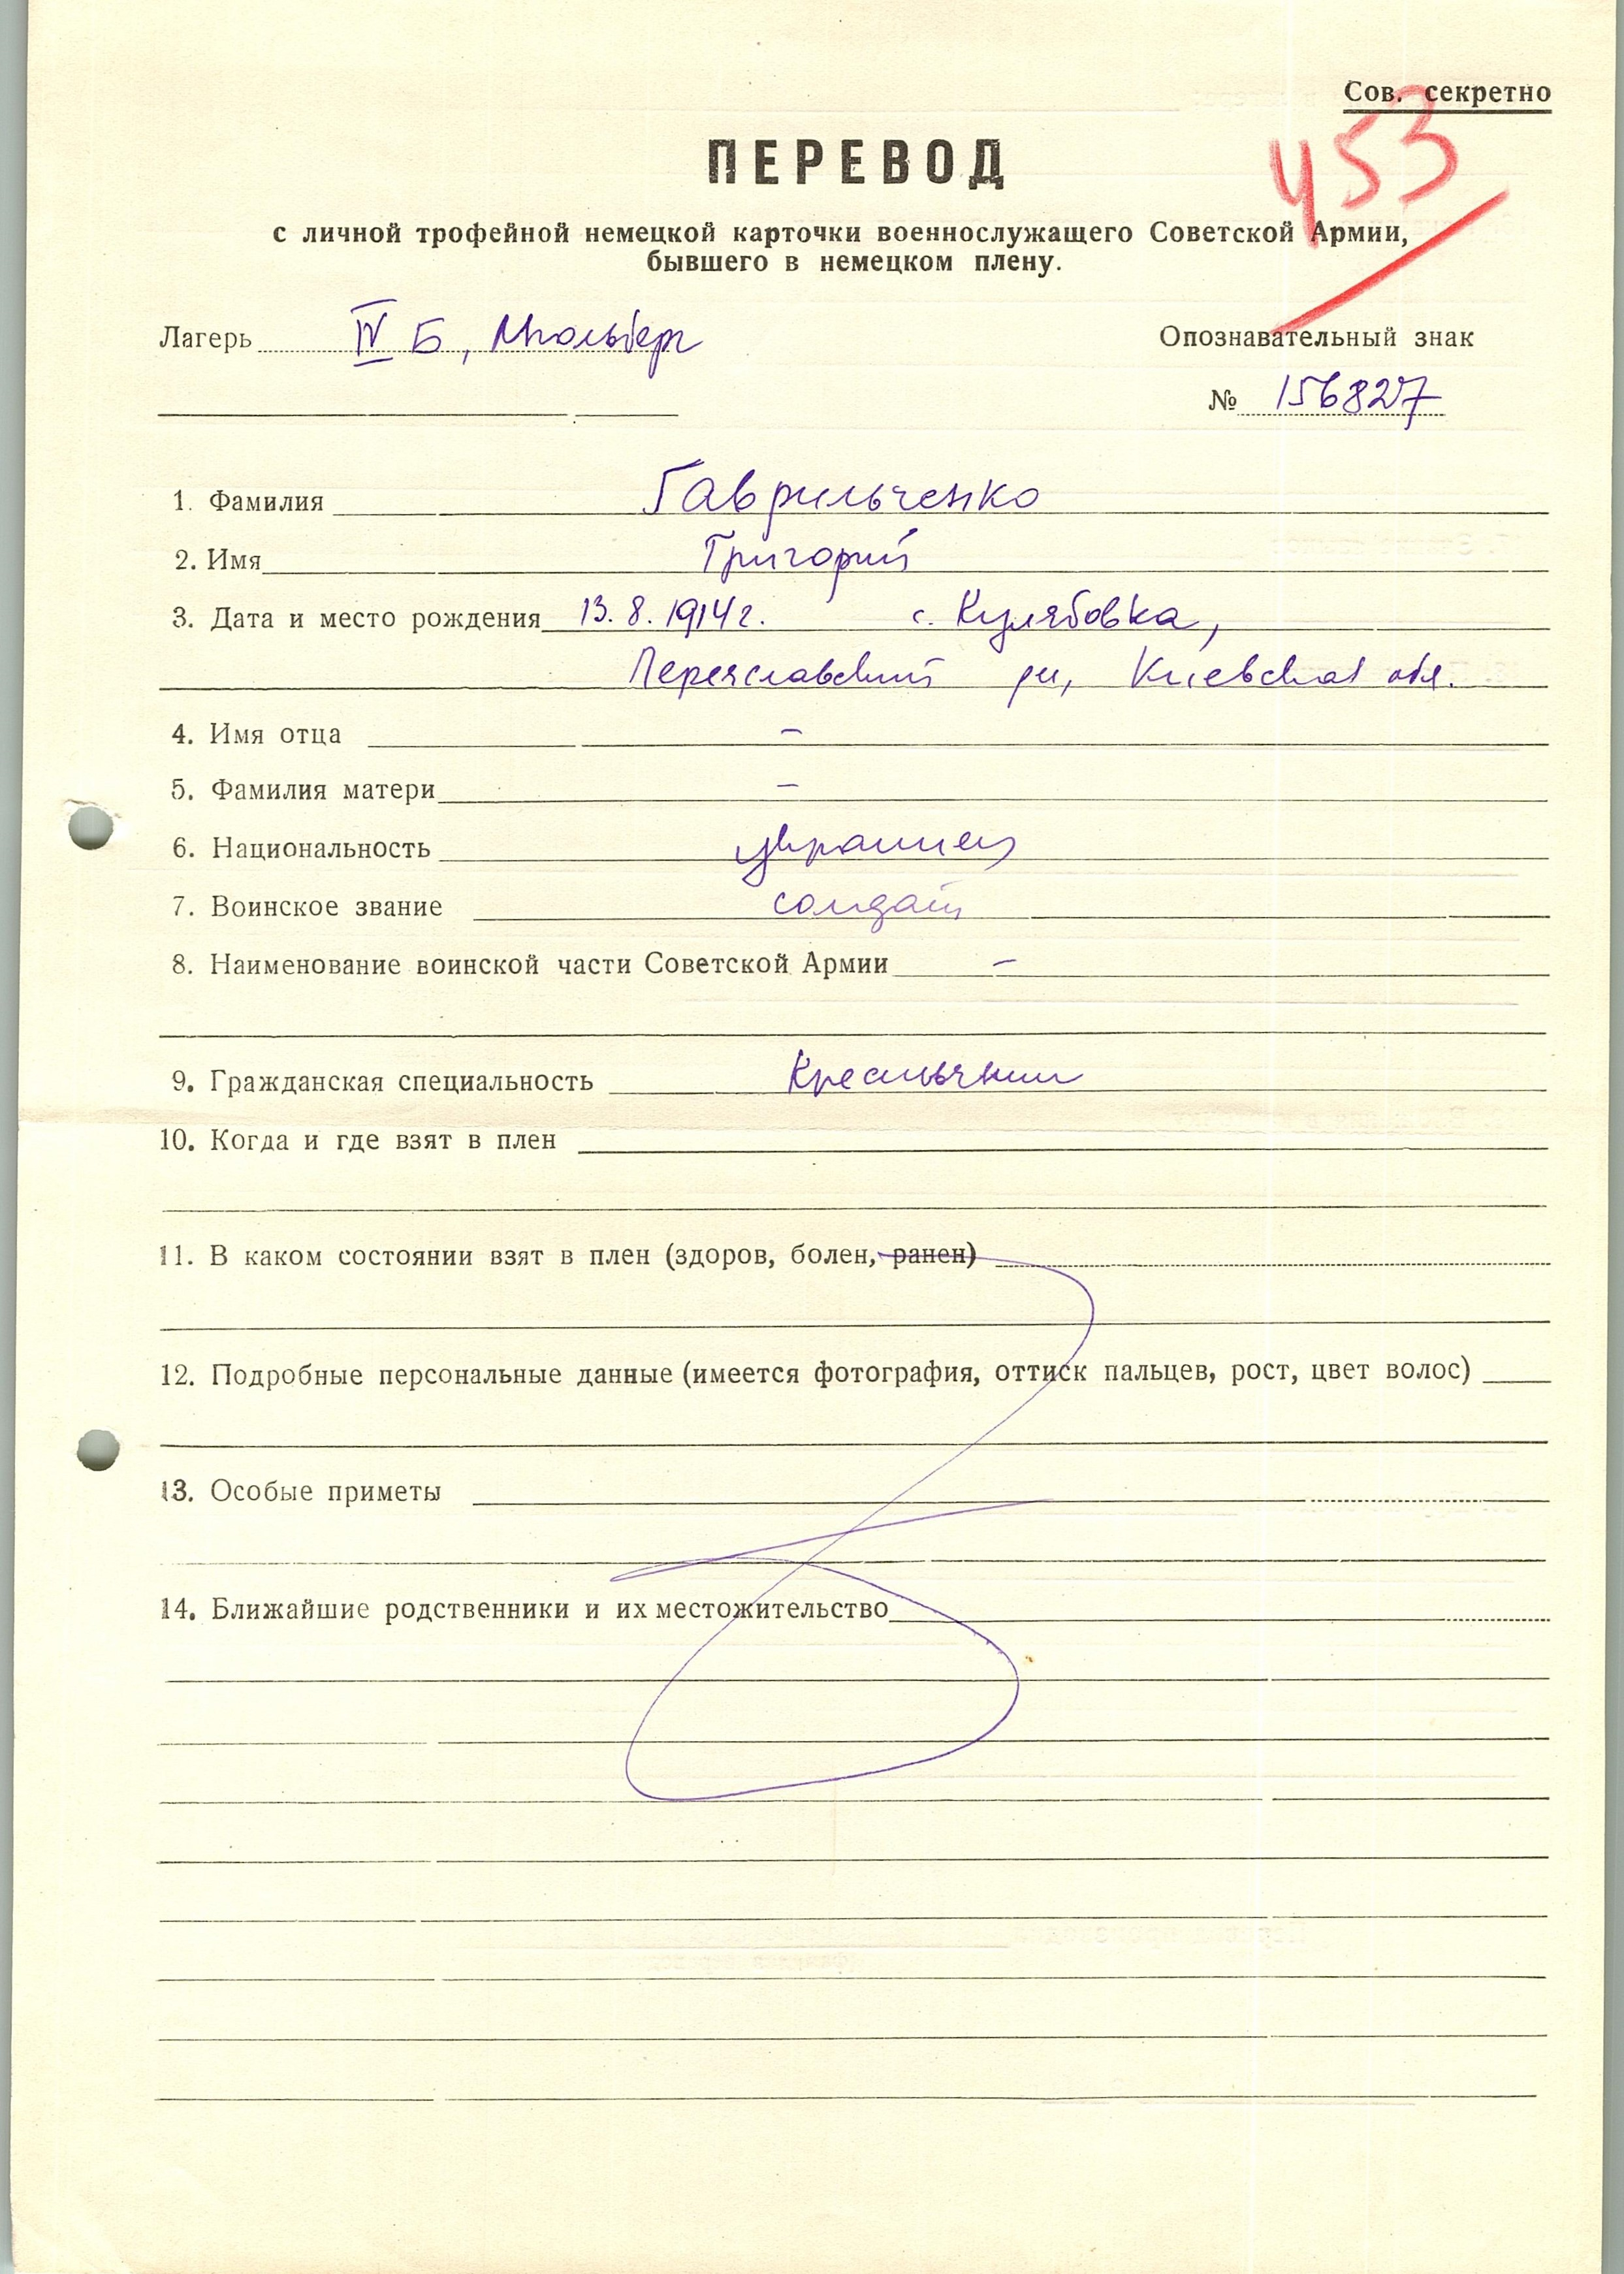 Сов. секретно
453
ПЕРЕВОД
с личной трофейной немецкой карточки военнослужащего Советской Армии,
бывшего в немецком плену.
Лагерь IV Б, Мюльберг
Опознавательный знак
№ 156827
1. Фамилия Гаврильченко
2. Имя Григорий
3. Дата и место рождения 13. 8. 1914 г. с. Кулябовка,
Переяславский рн, Киевская обл.
4. Имя отца –
5. Фамилия матери –
6. Национальность украинец
7. Воинское звание солдат
8. Наименование воинской части Советской Армии –
9. Гражданская специальность Крестьянин
10. Когда и где взят в плен
11. В каком состоянии взят в плен (здоров, болен, ранен)
12. Подробные персональные данные (имеется фотография, оттиск пальцев, рост, цвет волос)
13. Особые приметы
14. Ближайшие родственники и их местожительство